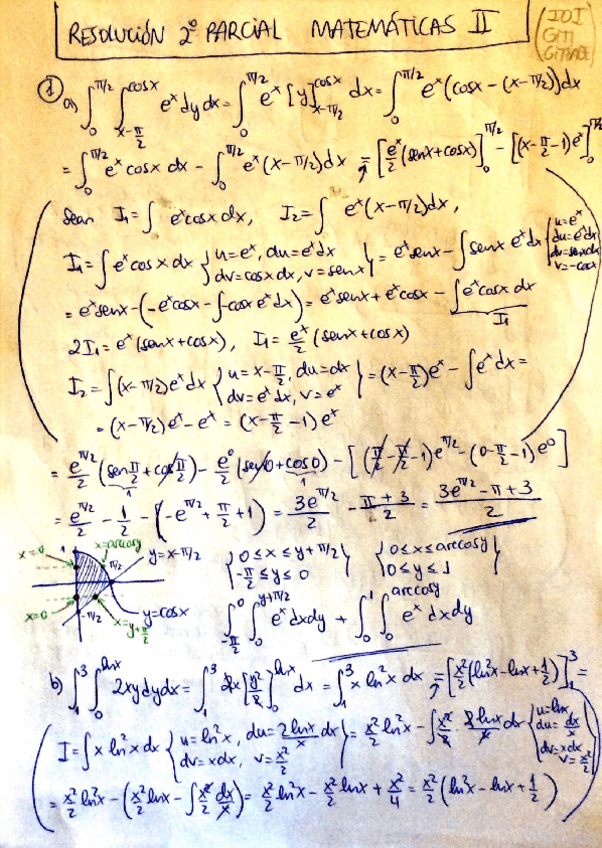 RESOLUCIÓN 2º PARCIAL MATEMÁTICAS II
(IOI
GITI
GITIADE)
① a) ∫₀^{π/2} ∫_{x-π/2}^{cosx} eˣ dy dx = ∫₀^{π/2} eˣ [y]_{x-π/2}^{cosx} dx = ∫₀^{π/2} eˣ(cosx - (x-π/2))dx
= ∫₀^{π/2} eˣ cosx dx - ∫₀^{π/2} eˣ(x-π/2)dx = [eˣ/2 (senx+cosx)]₀^{π/2} - [(x-π/2-1)eˣ]₀^{π/2}
Sean I₁=∫ eˣcosx dx, I₂=∫ eˣ(x-π/2)dx,
I₁=∫eˣcosx dx {u=eˣ, du=eˣdx dv=cosx dx, v=senx} = eˣsenx - ∫senx eˣdx {u=eˣ du=eˣdx dv=senxdx v=-cosx}
= eˣsenx-(-eˣcosx-∫-cosx eˣdx) = eˣsenx+eˣcosx - ∫eˣcosx dx
I₁
2I₁=eˣ(senx+cosx), I₁=eˣ/2 (senx+cosx)
I₂=∫(x-π/2)eˣdx {u=x-π/2, du=dx dv=eˣdx, v=eˣ} = (x-π/2)eˣ - ∫eˣdx =
= (x-π/2)eˣ-eˣ = (x-π/2-1)eˣ
= e^{π/2}/2 (sen π/2 + cos π/2) - e⁰/2 (sen0+cos0) - [(π/2-π/2-1)e^{π/2} - (0-π/2-1)e⁰]
1 1
= e^{π/2}/2 - 1/2 - (-e^{π/2}+π/2+1) = 3e^{π/2}/2 - (π+3)/2 = (3e^{π/2}-π+3)/2
x=0 1 x=arccosy y=x-π/2 {0≤x≤y+π/2 -π/2≤y≤0} {0≤x≤arccosy 0≤y≤1}
x=0 -π/2 x=y+π/2 y=cosx ∫_{-π/2}^0 ∫₀^{y+π/2} eˣdxdy + ∫₀¹ ∫₀^{arccosy} eˣdxdy
b) ∫₁³ ∫₀^{lnx} 2xydydx = ∫₁³ 2x[y²/2]₀^{lnx} dx = ∫₁³ x ln²x dx = [x²/2 (ln²x-lnx+1/2)]₁³ =
I=∫x ln²x dx {u=ln²x, du=2lnx/x dx dv=xdx, v=x²/2} = x²/2 ln²x - ∫x²/2 · 2lnx/x dx {u=lnx, du=dx/x dv=xdx v=x²/2}
= x²/2 ln²x - (x²/2 lnx - ∫x²/2 dx/x) = x²/2 ln²x - x²/2 lnx + x²/4 = x²/2 (ln²x-lnx+1/2)